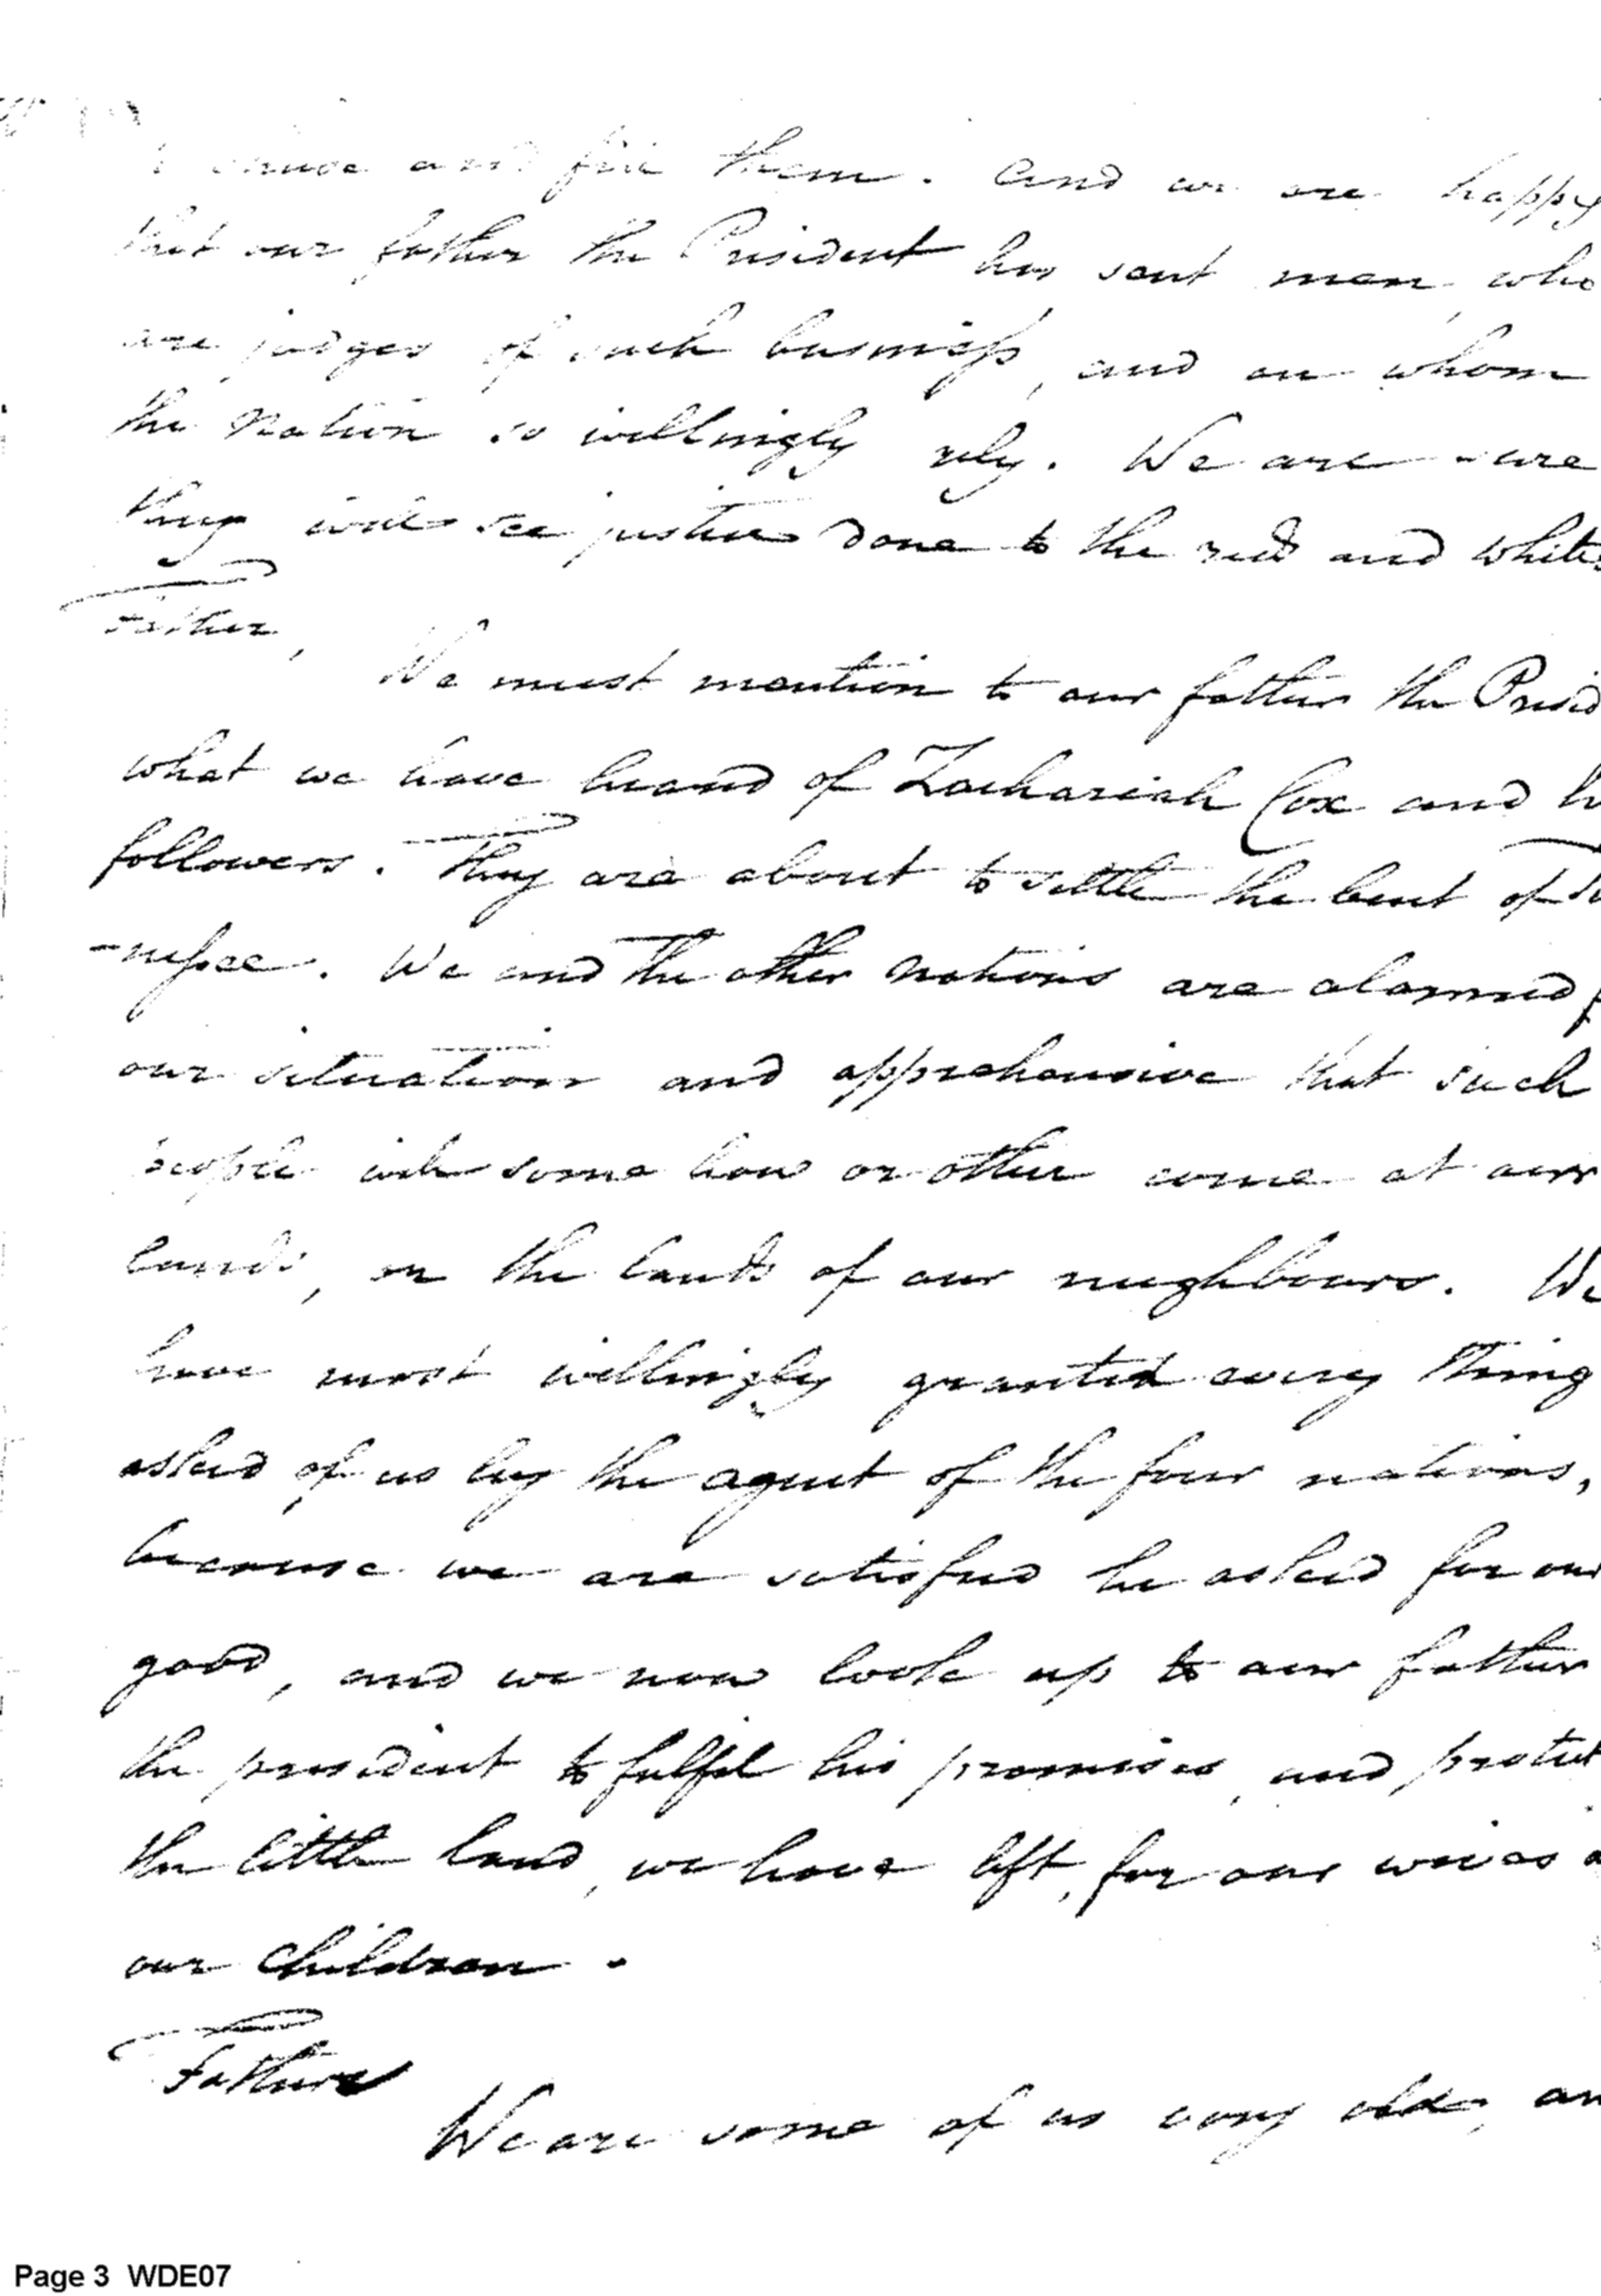 and fix them. And we are happy
that our father the President has sent men, who
are judges of such business, and on whom
the Nation so willingly rely. We are sure
they will see justice done to the red and whites
Father,
We must mention to our father the Presid
what we have heard of Zachariah Cox and hi
followers. They are about to settle the bent of Te
-nessee. We and the other Nations are alarmed f
our situation and apprehensive that such
people will some how or other come at our
lands, or the lands of our neighbours. We
have most willingly granted every thing
asked of us by the agent of the four nations,
because we are satisfied he asked for our
good, and we now look up to our father
the president to fulfil his promises, and protect
the little land, we have left, for our wives a
our children.
Father
We are some of us very old, an
Page 3 WDE07